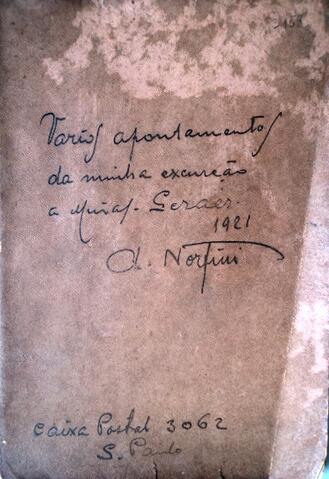 Varios apontamentos
da minha excursão
a Minas-Geraes-
1921
A. Norfini
Caixa Postal 3062
S. Paulo